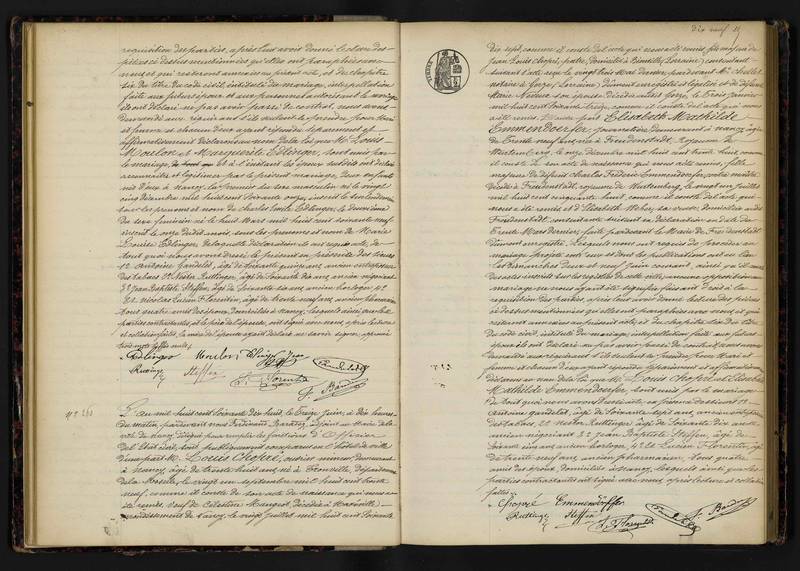 réquisition des parties, après leur avoir donné lecture des
pièces ci-dessus mentionnées
et qui resteront annexées au présent acte, et du chapitre
six du titre du code civil, intitulé du mariage, interpellation
faite aux futurs époux
ont déclaré ne pas avoir passé de contrat, nous avons
demandé aux requérants s'ils veulent se prendre pour mari
et femme et chacun d'eux ayant répondu séparément et
affirmativement déclarons au nom de la loi que M. Louis
Moulon et Marguerite Edlinger, sont unis par
le mariage, et à l'instant les époux susdits ont déclaré
reconnaître et légitimer par le présent mariage, deux enfants
nés d'eux à Nancy, le premier du sexe masculin né le vingt
cinq décembre mil huit cent soixante onze, inscrit le surlendemain
sous les prénoms et nom de Charles Emile Edlinger, le deuxième
du sexe féminin né le huit Mars mil huit cent soixante neuf
inscrit le onze dudit mois, sous les prénoms et nom de Marie
Louise Edlinger, de laquelle déclaration ils ont requis acte, de
tout quoi nous avons dressé le présent en présence des sieurs
1° Antoine Gandelet, âgé de soixante quinze ans, ancien entreposeur
des tabacs 2° Nestor Ruttinger, âgé de soixante dix ans, ancien négociant
3° Jean Baptiste Steffen, âgé de soixante six ans, ancien horloger, et
4° Nicolas Lucien Florentin, âgé de trente neuf ans, ancien pharmacien
tous quatre amis des époux, domiciliés à Nancy, lesquels ainsi que les
parties contractantes, et le père de l'épouse, ont signé avec nous, après lecture
et collation faites, la mère de l'épouse ayant déclaré ne savoir signer, approuvé
trois mots rayés nuls.
Edlinger Moulon
Ruttinger Steffen
Florentin
N° 210
L'an mil huit cent soixante dix huit, le treize juin, à dix heures
du matin, pardevant nous Ferdinand Baradez, adjoint au Maire de la
ville de Nancy, délégué pour remplir les fonctions d'Officier
de l'état civil, sont publiquement comparus en l'Hôtel de ville
d'une part M. Louis Chopré, ouvrier mineur, demeurant
à Nancy, âgé de trente huit ans, né à Thionville, département
de la Moselle, le vingt un septembre mil huit cent trente
neuf, comme il conste de son acte de naissance qui nous a
été remis, veuf de Célestine Mangeot, décédée à Maxéville,
arrondissement de Nancy, le vingt juillet mil huit cent soixante
dix neuf
dix sept, comme il conste de l'acte qui nous a été remis, fils majeur de
Jean Louis Chopré, pâtre, domicilié à Bionville, Lorraine, consentant
suivant l'acte reçu le vingt trois Mai dernier, pardevant Me
notaire à Gorze, Lorraine, dûment enregistré et légalisé, et de défunte
Marie son épouse, décédée audit Gorze, le trois Janvier
mil huit cent soixante treize, comme il conste de l'acte qui nous
a été remis. D'autre part Elisabeth Mathilde
Emmendoerfer, journalière, demeurant à Nancy, âgée
de trente neuf ans, née à Freudenstadt, royaume de
Wurtemberg, le onze décembre mil huit cent trente huit, comme
il conste de son acte de naissance qui nous a été remis, fille
majeure de défunt Charles Frédéric Emmendoerfer,
décédé à Freudenstadt, royaume de Wurtemberg, le vingt un juillet
mil huit cent cinquante huit, comme il conste de l'acte qui
nous a été remis et d'Elisabeth Weber, sa veuve, domiciliée audit
Freudenstadt, consentante suivant sa déclaration en date du
trente Mars dernier, faite pardevant le Maire de Freudenstadt
dûment enregistré. Lesquels nous ont requis de procéder au
mariage projeté entr'eux et dont les publications ont eu lieu
les dimanches deux et neuf juin courant, ainsi qu'il conste
des actes inscrits sur les registres de cette ville, aucune opposition au
mariage ne nous ayant été signifiée, faisant droit à la
réquisition des parties, après leur avoir donné lecture des pièces
ci-dessus mentionnées qu'elles ont paraphées avec nous et qui
resteront annexées au présent acte, et du chapitre six du titre
du code civil, intitulé du mariage, interpellation faite aux futurs
époux ils ont déclaré ne pas avoir passé de contrat, nous avons
demandé aux requérants s'ils veulent se prendre pour mari et
femme et chacun d'eux ayant répondu séparément et affirmativement
déclarons au nom de la loi que M. Louis Chopré et Elisabeth
Mathilde Emmendoerfer, sont unis par le mariage
de tout quoi nous avons dressé acte, en présence des sieurs 1°
Antoine Gandelet, âgé de soixante quinze ans, ancien entreposeur
des tabacs, 2° Nestor Ruttinger, âgé de soixante dix ans,
ancien négociant 3° Jean Baptiste Steffen, âgé de
soixante six ans, ancien horloger, 4° Lucien Florentin, âgé
de trente neuf ans, ancien pharmacien, tous quatre
amis des époux, domiciliés à Nancy, lesquels ainsi que les
parties contractantes ont signé avec nous, après lecture et collation
faites.
Chopré Emmendörffer
Ruttinger Steffen